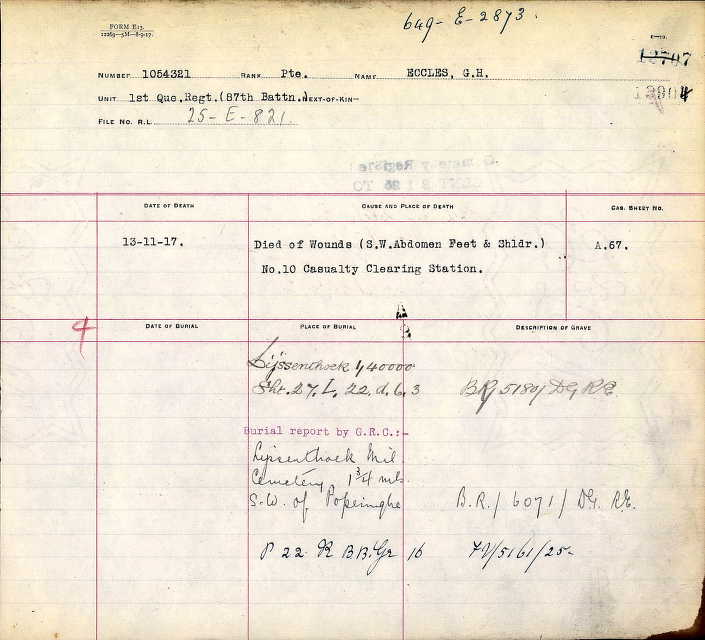 FORM E17.
12269—5M—8-9-17.
649-E-2873.
12707
NUMBER 1054321 RANK Pte. NAME ECCLES, G.H.
UNIT 1st Que.Regt.(87th Battn.) NEXT-OF-KIN—
FILE NO. R.L. 25-E-821
DATE OF DEATH CAUSE AND PLACE OF DEATH CAS. SHEET NO.
13-11-17. Died of Wounds (S.W.Abdomen Feet & Shldr.) A.67.
No.10 Casualty Clearing Station.
4
DATE OF BURIAL PLACE OF BURIAL DESCRIPTION OF GRAVE
Lijssenthoek 1/40000
Sht. 27. L. 22. d. 6. 3 BR/5180/DG RE
Burial report by G.R.C.:-
Lijssenthoek Mil
Cemetery 1 3/4 mls.
S.W. of Popeinghe B.R./6071/DG. RE.
P 22 R BB. Gr 16